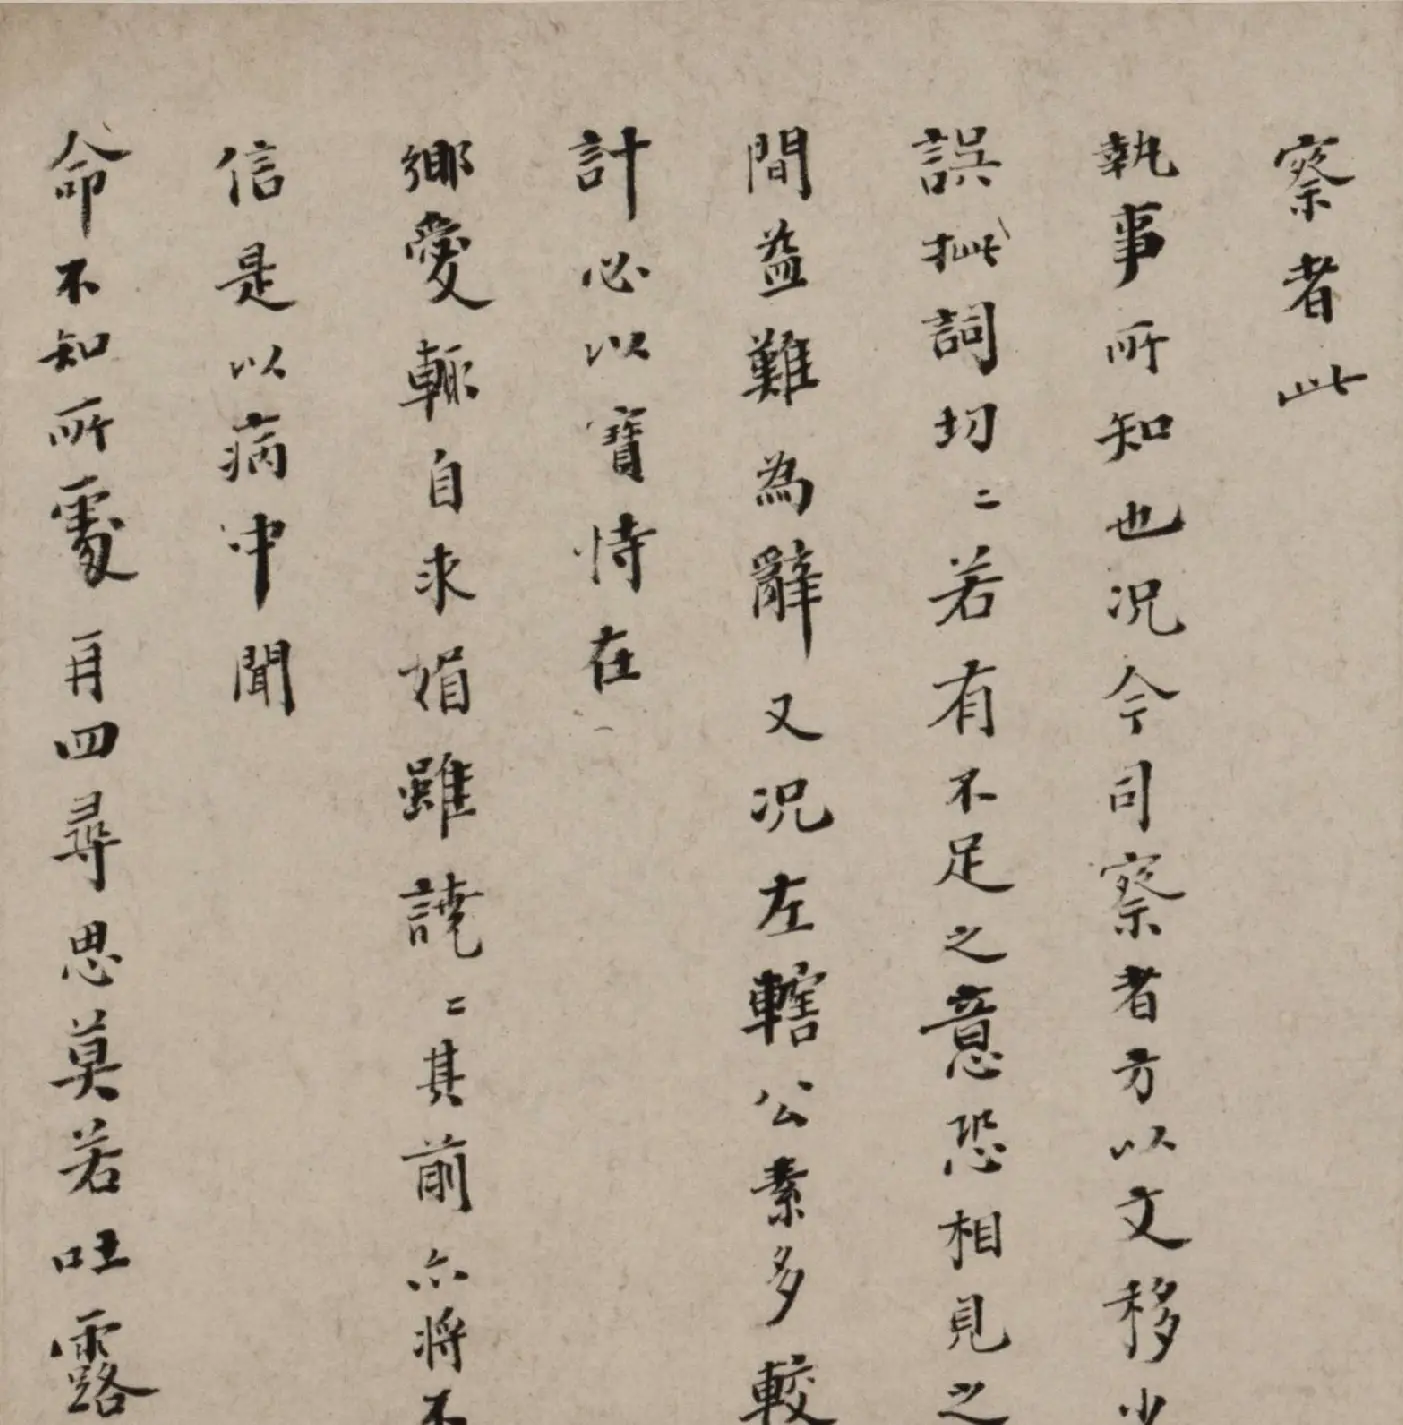 察者此
執事所知也况今司察者方以文移
誤批詞切〻若有不足之意恐相見之
間益難為辭又况左轄公素多較
計必以實恃在
鄉愛輒自求媚雖譊〻其前亦將不
信是以病中聞
命不知所處再四尋思莫若吐露